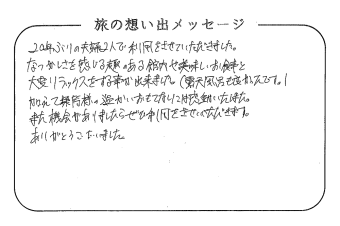 旅の想い出メッセージ
20年ぶりの夫婦2人で利用をさせていただきました。
なつかしさを感じる趣のある館内や美味しいお食事と
大変リラックスをする事が出来ました。（露天風呂も良かったです。）
加えて接客係の温かいおもてなしには感動いたしました。
また機会がありましたらぜひ利用をさせていただきます。
ありがとうございました。